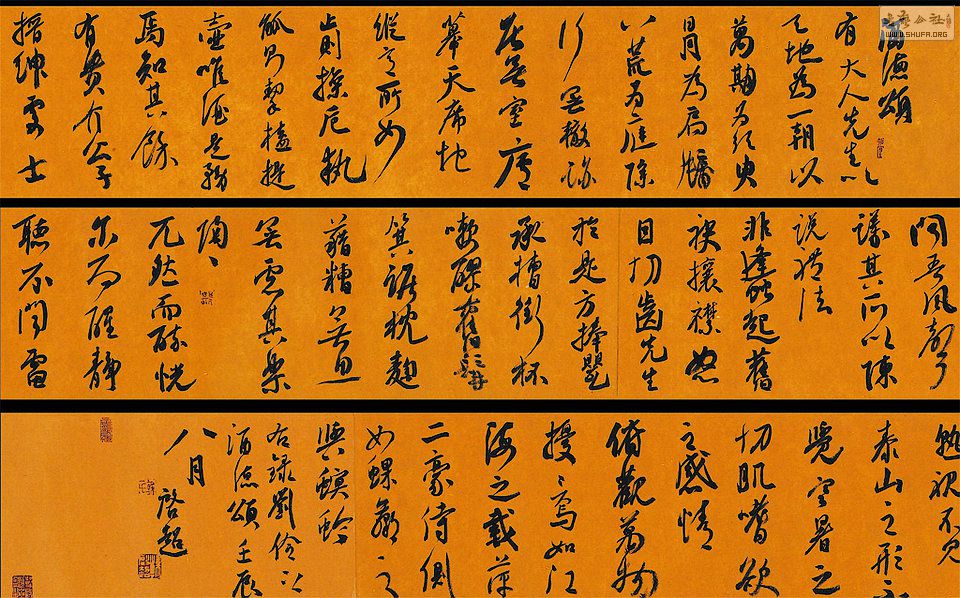 酒德頌
有大人先生以
天地為一朝以
萬期為須臾
日月為扃牖
八荒為庭除
行無轍跡
居無室廬
幕天席地
縱意所如
止則操卮執
觚動則挈榼提
壺唯酒是務
焉知其餘
有貴介公子
搢紳處士
聞吾風聲
議其所以陳
說禮法
是非蜂起奮
袂攘襟怒
目切齒先生
於是方捧甖
承槽銜杯
漱醪奮髯
箕踞枕麴
藉糟無思
無慮其樂
陶、
兀然而醉恍
尔而醒靜
聽不聞雷
孰視不見
泰山之形不
覺寒暑之
切肌嗜欲
之感情
俯觀萬物
擾、焉如江
海之載萍
二豪侍側
如蜾蠃之
與螟蛉
右錄劉伶之
酒德頌壬辰
八月
啓超
WWW.SHUFA.ORG